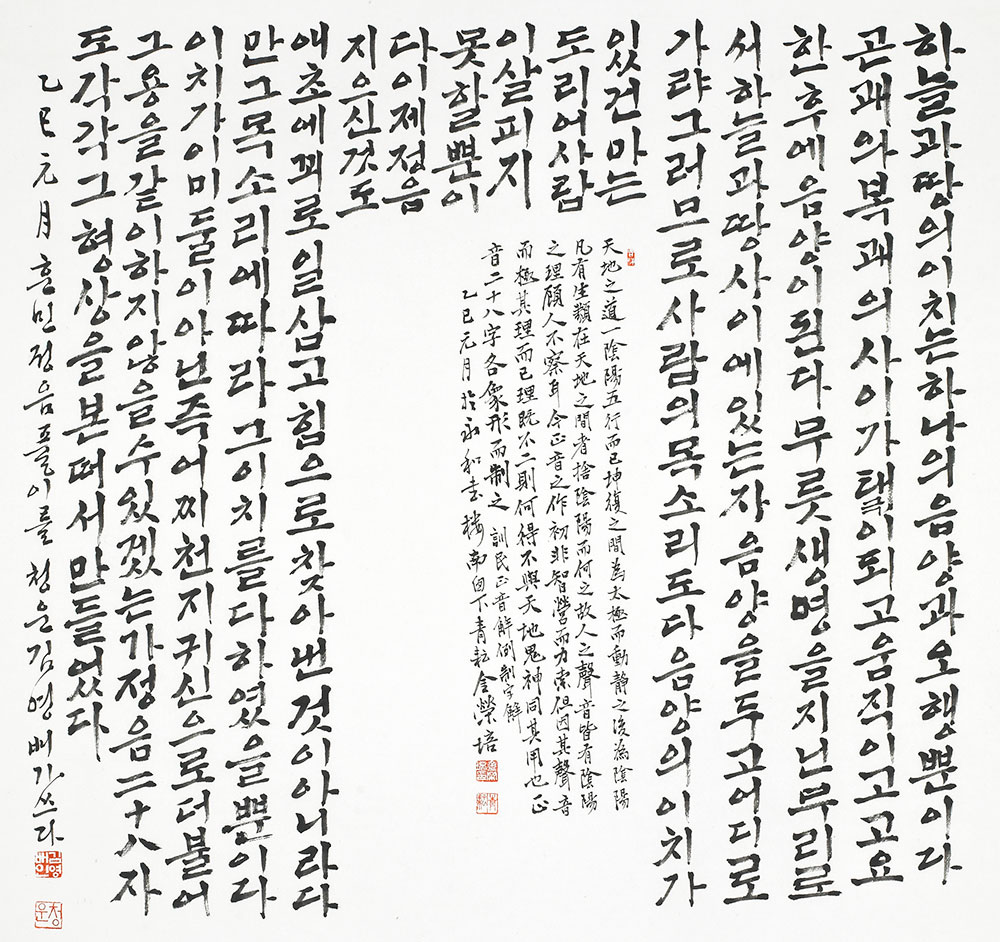 하늘과땅의이치는하나의음양과오행뿐이다
곤괘와복괘의사이가태극이되고움직이고고요
한후에음양이된다무릇생명을지닌무리로
서하늘과땅사이에있는자음양을두고어디로
가랴그러므로사람의목소리도다음양의이치가
있건마는
도리어사람
이살피지
못할뿐이
다이제정음
지으신것도
애초에꾀로일삼고힘으로찾아낸것이아니라다
만그목소리에따라그이치를다하였을뿐이다
이치가이미둘이아닌즉어찌천지귀신으로더불어
그용을같이하지않을수있겠는가정음二十八자
도각각그형상을본떠서만들었다
乙巳元月훈민정음풀이를청운김영배가쓰다
김영배인
청운
天地之道一陰陽五行而已坤復之間為太極而動靜之後為陰陽
凡有生類在天地之間者捨陰陽而何之故人之聲音皆有陰陽
之理顧人不察耳今正音之作初非智營而力索但因其聲音
而極其理而已理既不二則何得不與天地鬼神同其用也正
音二十八字各象形而制之 訓民正音解例制字解
乙巳元月於永和書樓南囱下青耘金榮培